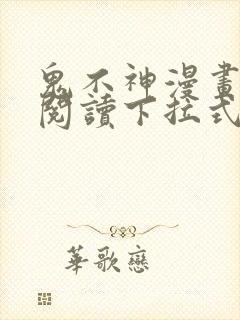 鬼不神漫畫
閱讀下拉式
華歌戀